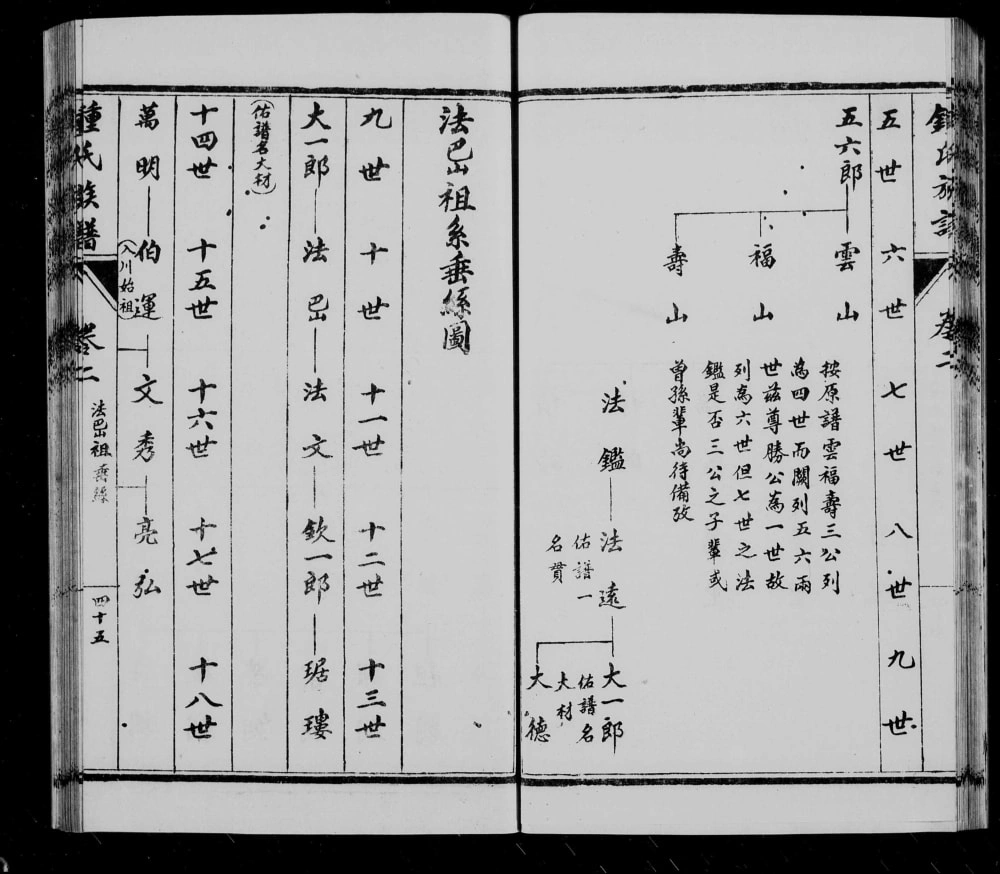 鍾氏族譜 卷二
五世 六世 七世 八世 九世
五六郎 雲山
福山
壽山
按原譜雲福壽三公列
為四世而關列五六兩
世茲尊勝公為一世故
列為六世但七世之法
鑑是否三公之子輩或
曾孫輩尚待備攷
法鑑 法遠 大一郎
佑譜一
名貫
佑譜名
大材
大德
法巴祖系垂絲圖
九世 十世 十一世 十二世 十三世
大一郎 法巴 法文 欽一郎 琚瓊
(佑譜名大材)
十四世 十五世 十六世 十七世 十八世
萬明 伯運 文秀 亮弘
(入川始祖)
鍾氏族譜 卷二 法巴祖垂絲 四十五